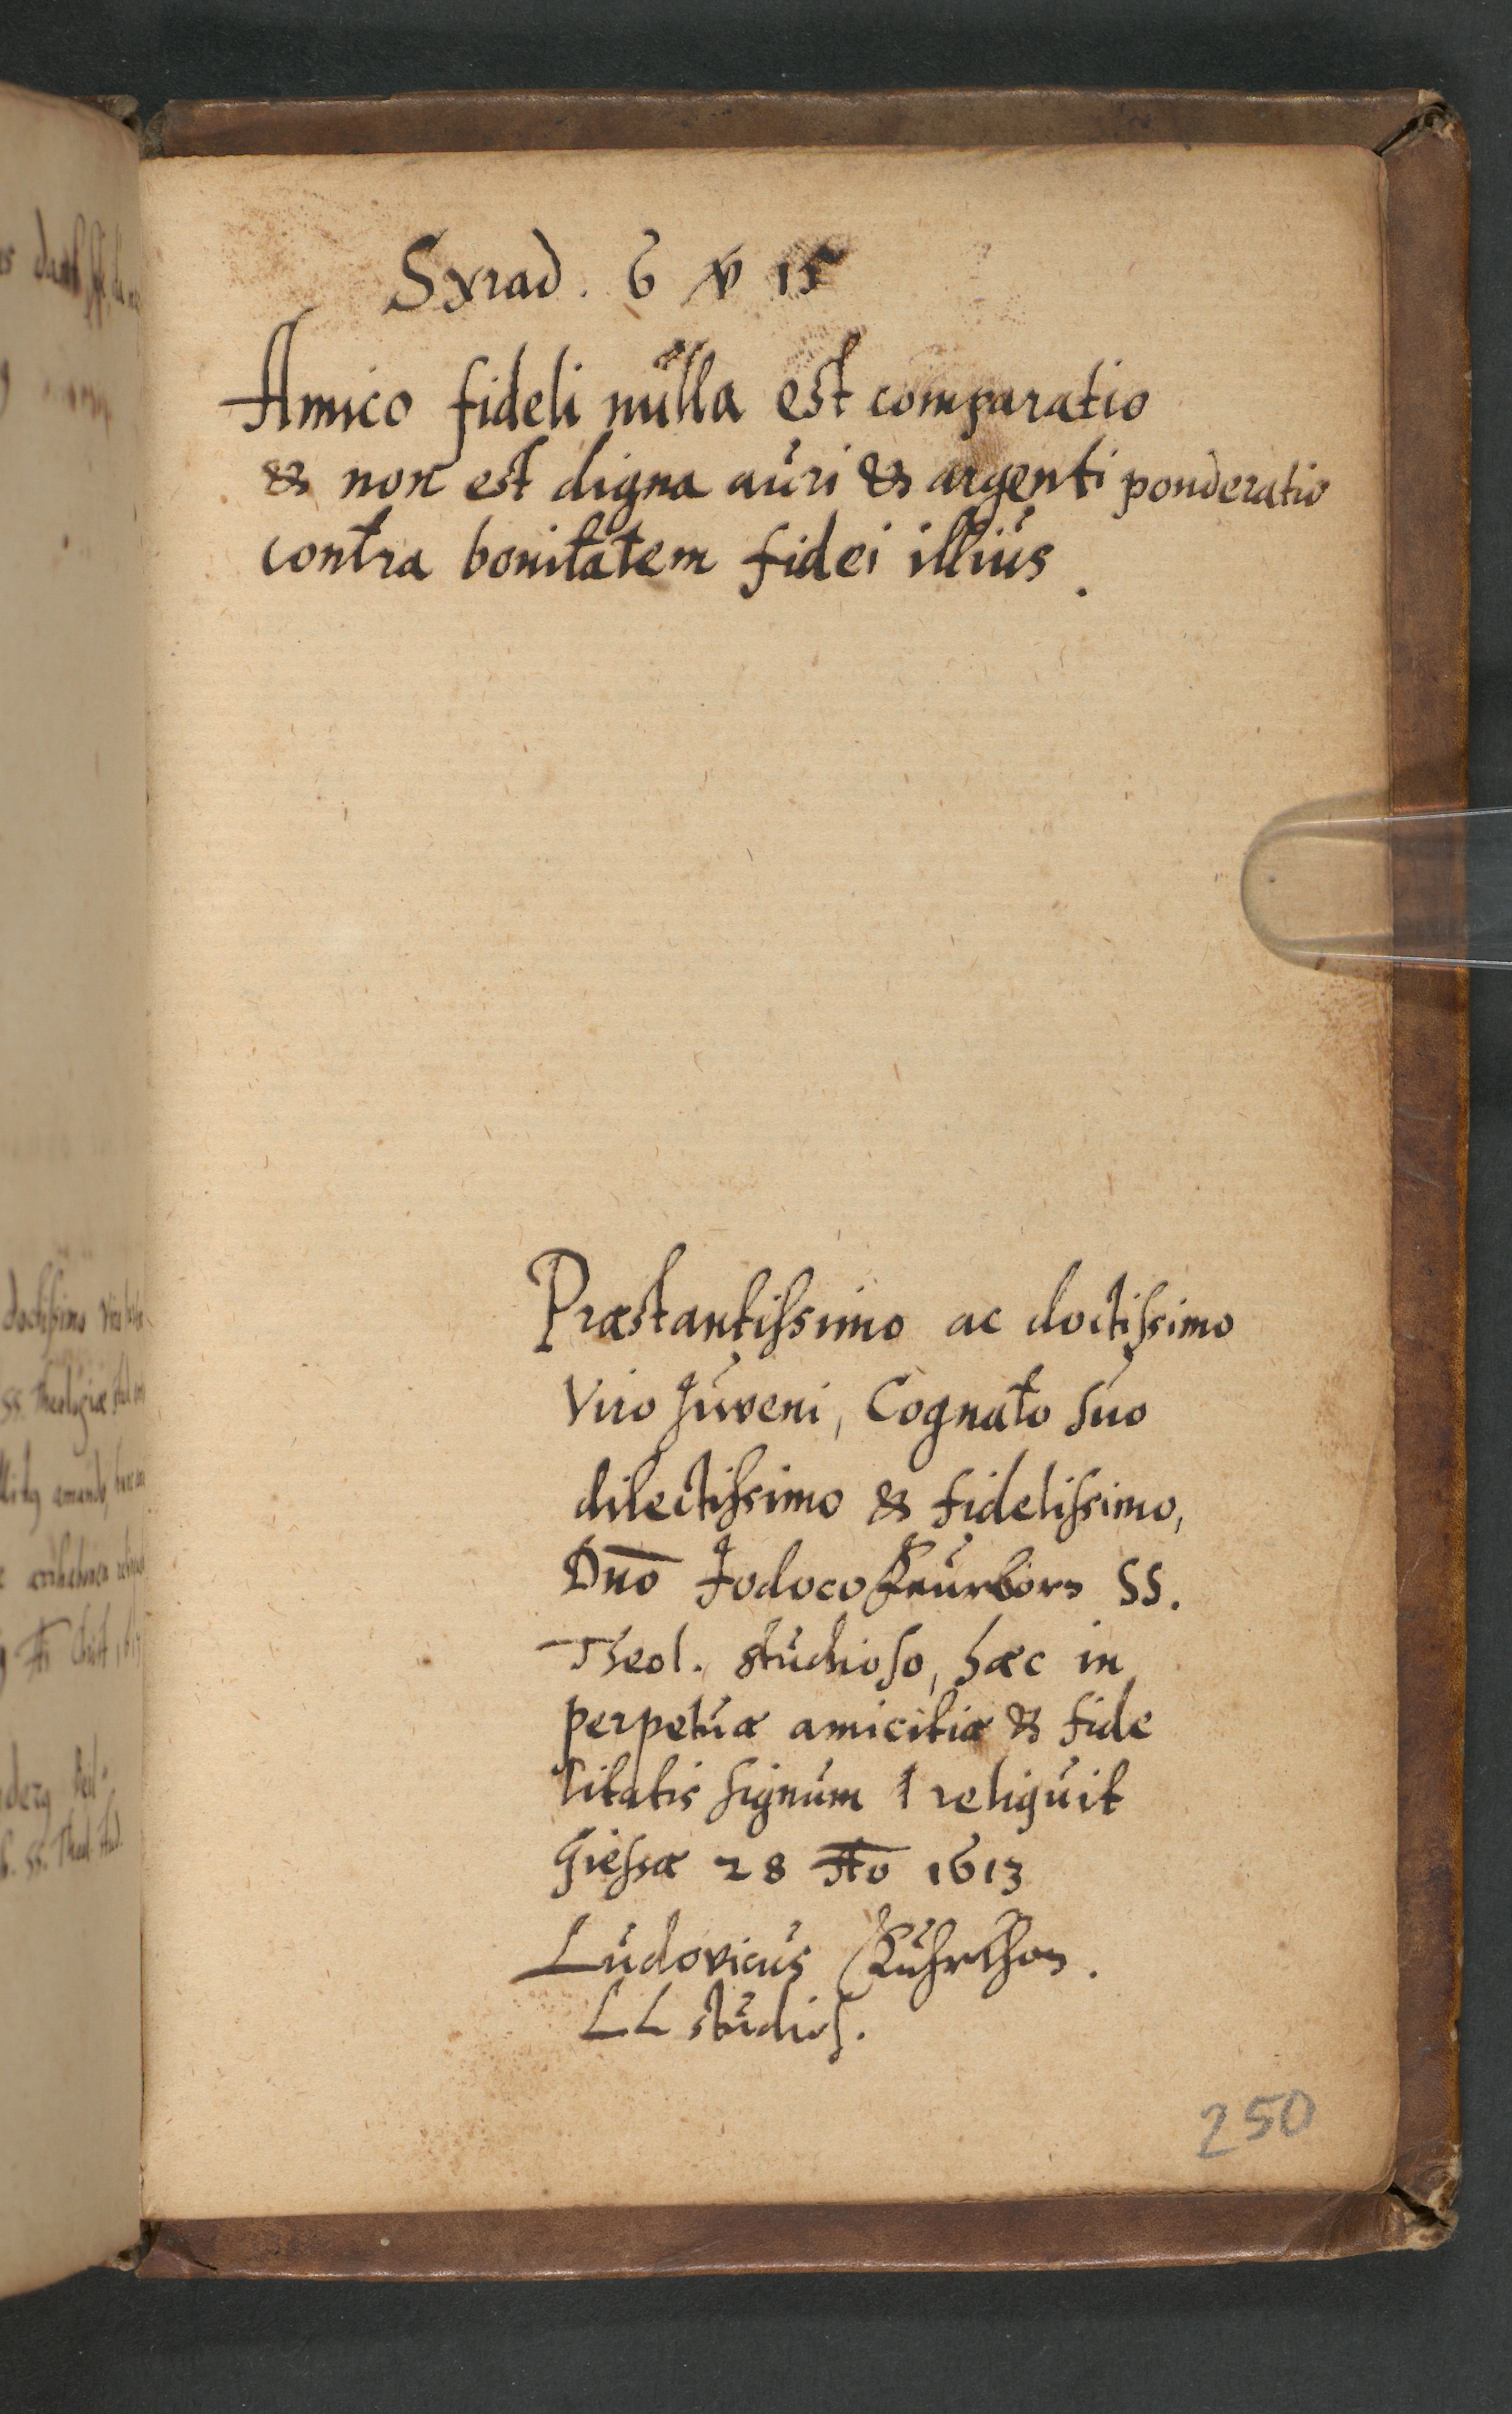 Syrad. 6 v 15
Amico fideli nulla est comparatio
& non est digna auri & argenti ponderatio
contra bonitatem fidei illius.
Præstantissimo ac doctissimo
Viro Juveni, Cognato suo
dilectissimo & fidelissimo,
Dnō Jodoco SS.
Theol. studioso, hæc in
perpetuæ amicitiæ & fide
litatis signum reliquit
Giessæ 28 1613
Ludovicus
LL studios.
250